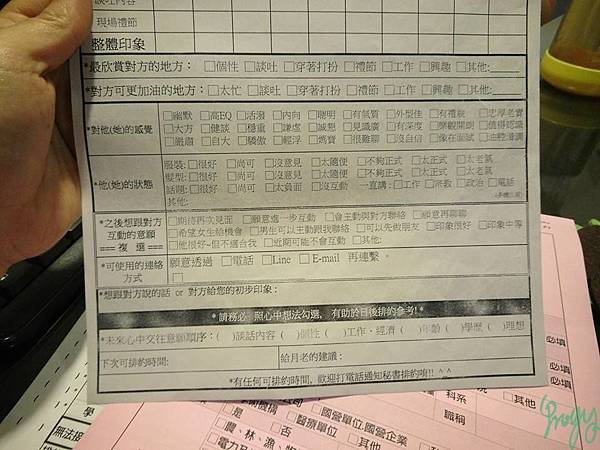 談吐內容
現場禮節
整體印象
*最欣賞對方的地方： □個性 □談吐 □穿著打扮 □禮節 □工作 □興趣 □其他:
*對方可更加油的地方： □太忙 □談吐 □穿著打扮 □禮節 □工作 □興趣 □其他:
*對他(她)的感覺
□幽默 □高EQ □活潑 □內向 □聰明 □有氣質 □外型佳 □有禮貌 □忠厚老實
□大方 □健談 □穩重 □謙虛 □誠懇 □見識廣 □有深度 □樂觀開朗 □值得認識
□嚴肅 □自大 □驕傲 □輕浮 □很難聊 □沒自信 □像在面試 □油腔滑調
*他(她)的狀態
服裝:□很好 □尚可 □沒意見 □太隨便 □不夠正式 □太正式 □太老氣
髮型:□很好 □尚可 □沒意見 □太隨便 □不夠正式 □太正式 □太老氣
話題:□很好 □尚可 □太負面 □沒互動 一直講:□工作 □宗教 □政治 □電話
其他:
*之後想跟對方
互動的意願
=== 複 選 ===
□期待再次見面 □願意進一步互動 □會主動與對方聯絡 □願意再聊聊
□希望女生給機會 □男生可以主動跟我聯絡 □可以先做朋友 □印象很好 □印象中等
□他很好~但不適合我 □近期可能不會互動 □其他:
*可使用的連絡
方式
願意透過 □電話 □Line □E-mail 再連繫。
*想跟對方說的話 or 對方給您的初步印象：
* 請務必 照心中想法勾選， 有助於日後排約參考! *
*未來心中交往意願順序：( )談話內容 ( )個性 ( )工作、經濟 ( )年齡 ( )學歷 ( )理想
下次可排約時間:
給月老的建議：
*有任何可排約時間, 歡迎打電話通知秘書排約唷!! ^_^
必填
必填
科系 □其他
職稱
□國營單位.國營企業
□是 □否 □醫療單位 □其他
□農、林、漁、牧
學